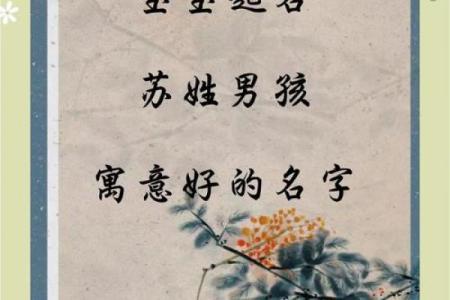 宝宝起名
苏姓男孩
寓意好的名字